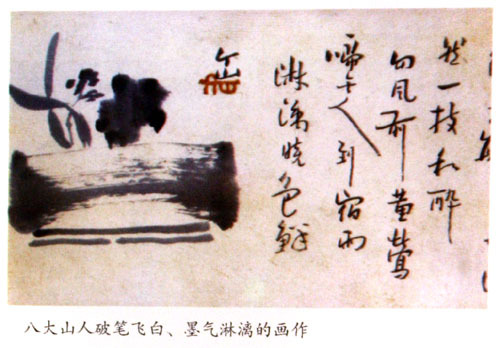 然一枝和醉
向风前黄鶯
啼 到宿雨
淋漓晓色鲜
八大山人破笔飞白、墨气淋漓的画作